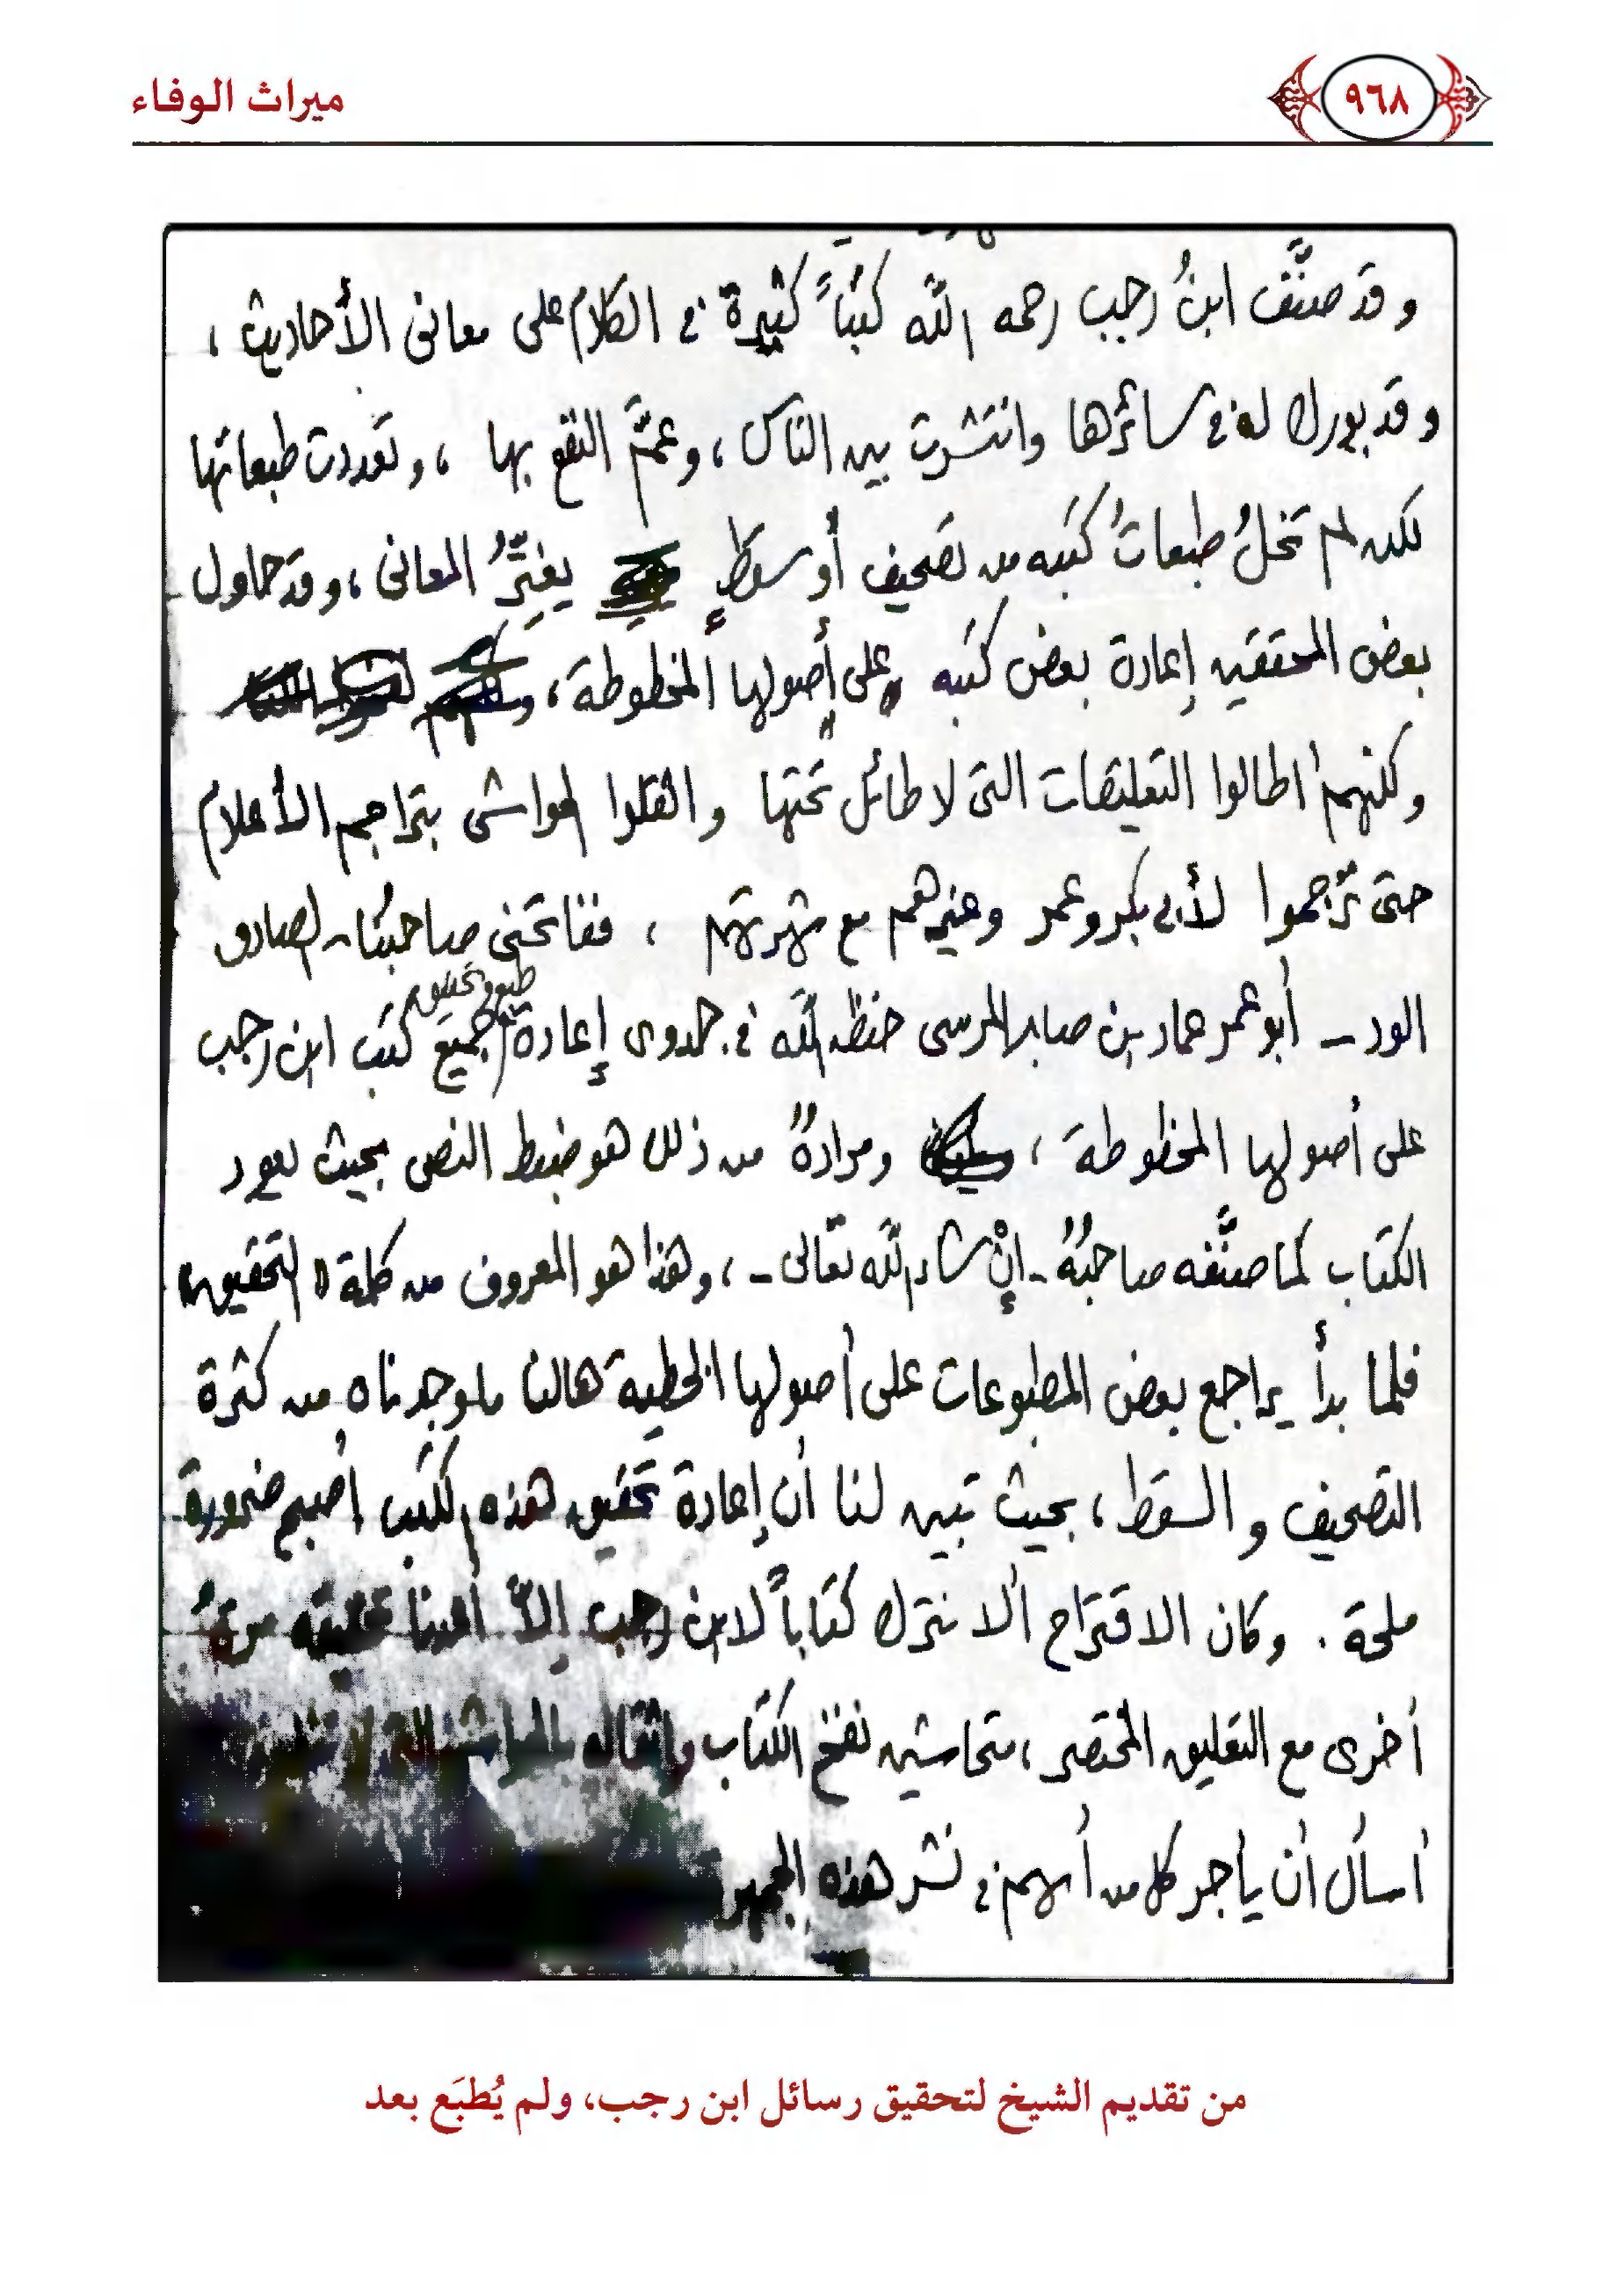 ميراث الوفاء
٩٦٨
وقد صنَّف ابنُ رجب رحمه الله كتباً كثيرة في الكلام على معاني الأحاديث ،
وقد بورك له في سائرها وانتشرت بين الناس ، وعمَّ النفع بها ، وتعددت طبعاتها
لكن لم تخلُ طبعاتُ كتبه من تصحيف أو سقطٍ يغيِّرُ المعاني ، وقد حاول
بعض المحققين إعادة بعض كتبه على أصولها المخطوطة ،
وكلنهم أطالوا التعليقات التي لا طائل تحتها وأثقلوا الحواشي بتراجم الأعلام
حتى تُرجموا لأبي بكر وعمر وغيرهم مع شهرتهم ، ففاتحني صاحبُنا - الصادق
الود - أبو عمر عماد بن صابر المرسي حفظه الله في جدوى إعادة طبع وتحقيق جميع كتب ابن رجب
على أصولها المخطوطة ، ومرادهُ من ذلك هو ضبط النص بحيث يعود
الكتاب كما صنَّفه صاحبُهُ - إنْ شاء الله تعالى - ، وهذا هو المعروف من كلمة " التحقيق "
فلما بدأ يراجع بعض المطبوعات على أصولها الخطية هالنا ما وجدناه من كثرة
التصحيف والسقط ، بحيث تبين لنا أن إعادة تحقيق هذه الكتب أصبح ضرورة
ملحة . وكان الاقتراح ألا نترك كتاباً لابن رجب إلاَّ أعدنا تحقيقه مرةً
أخرى مع التعليق المختصر ، متحاشين نفخ الكتاب وإثقاله بالحواشي التي لا
أسأل أن يأجر كل من أسهم في نشر هذه
من تقديم الشيخ لتحقيق رسائل ابن رجب، ولم يُطبَع بعد